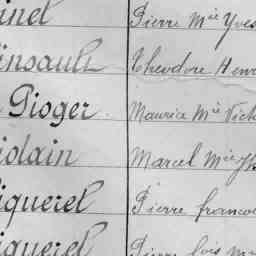 inel Pierre Mie Yves
insault Théodore Henri
Pioger Maurice Mie Vict
iolain Marcel Mie Jh
iquerel Pierre franco
iquerel Pierre lois